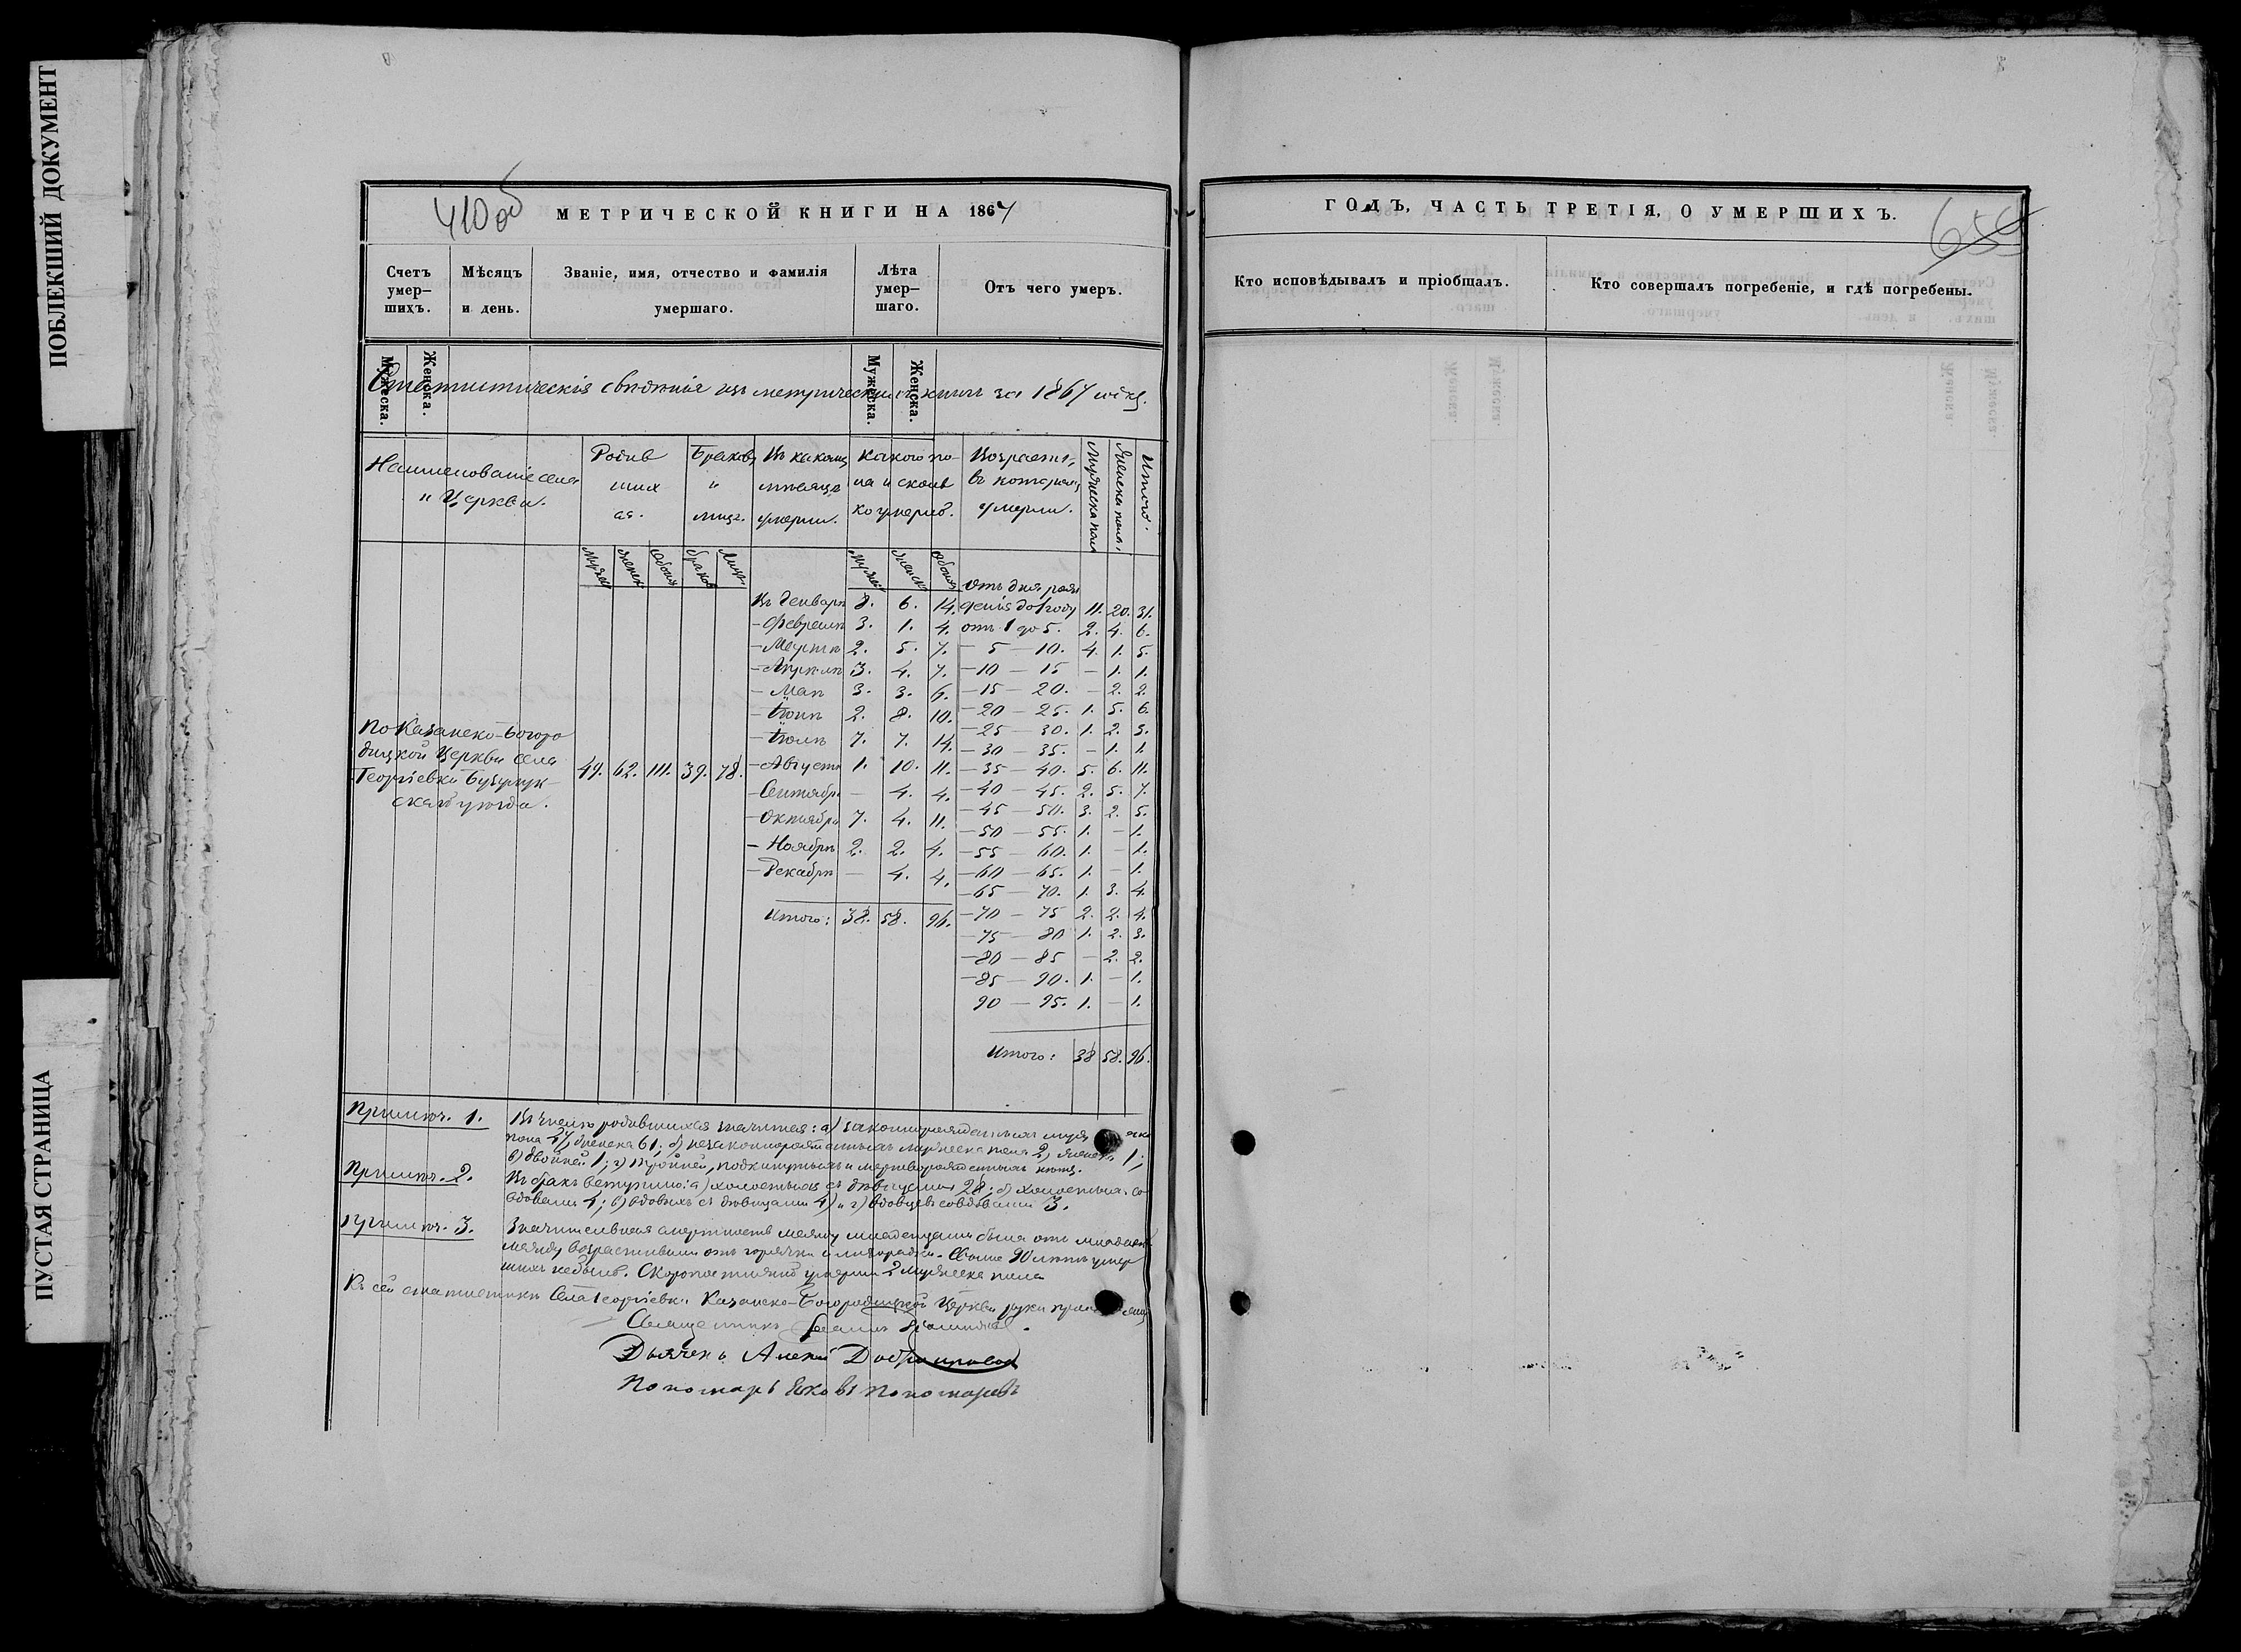 ПОБЛЕКШИЙ ДОКУМЕНТ
ПУСТАЯ СТРАНИЦА
410 об
МЕТРИЧЕСКОЙ КНИГИ НА 1867
Счетъ умер–шихъ. Мѣсяцъ и день. Званіе, имя, отчество и фамилія умершаго. Лѣта умер–шаго. Отъ чего умеръ.
Мужеска. Женска. Мужеска. Женска.
Статистическія свѣдѣнія изъ метрическихъ книгъ за 1867 годъ.
Наименованіе села и Церкви. Родив шихъ ся. Браковъ и лицъ. Въ какомъ мѣсяцѣ умерли. Какого по-ла и сколь ко умерло. Возрастъ, въ которомъ умерли. Мужеска пола Женска пола. Итого.
Мужес Женск Обоихъ браков Лицъ Мужес Женск Обоихъ
По Казанско-Богоро
дицкой Церкви села
Георгіевки Бузулук-
скаго уѣзда.
49. 62. 111. 39. 78.
Въ Генварѣ 8. 6. 14.
— Февралѣ 3. 1. 4.
— Мартѣ 2. 5. 7.
— Апрѣлѣ 3. 4. 7.
— Маѣ 3. 3. 6.
— Іюнѣ 2. 8. 10.
— Іюлѣ 7. 7. 14.
— Августѣ 1. 10. 11.
— Сентябрѣ — 4. 4.
— Октябрѣ 7. 4. 11.
— Ноябрѣ 2. 2. 4.
— Декабрѣ — 4. 4.
Итого: 38. 58. 96.
Отъ дня рож
денія до 1 году 11. 20. 31.
отъ 1 до 5. 2. 4. 6.
— 5 — 10. 4. 1. 5.
— 10 — 15 — 1. 1.
— 15 — 20. — 2. 2.
— 20 — 25. 1. 5. 6.
— 25 — 30. 1. 2. 3.
— 30 — 35. — 1. 1.
— 35 — 40. 5. 6. 11.
— 40 — 45. 2. 5. 7.
— 45 — 50. 3. 2. 5.
— 50 — 55. 1. — 1.
— 55 — 60. 1. — 1.
— 60 — 65. 1. — 1.
— 65 — 70. 1. 3. 4.
— 70 — 75 2. 2. 4.
— 75 — 80 1. 2. 3.
— 80 — 85 — 2. 2.
— 85 — 90. 1. — 1.
90 — 95. 1. — 1.
Итого: 38 58. 96.
Примѣч. 1. Въ числѣ родившихся значится: а) законнорожденныхъ муж
пола 47, женска 61; б) незаконнорожденныхъ мужеска пола 2, женска 1;
в) двойней 1; г) тройней, подкинутыхъ и мертворожденныхъ нѣтъ.
Примѣч. 2. Въ бракъ вступило: а) холостыхъ съ дѣвицами 28; б) холостыхъ со
вдовами 4; в) вдовыхъ съ дѣвицами 4 и г) вдовцевъ со вдовами 3.
Примѣч. 3. Значительная смертность между младенцами была отъ
между возрастными отъ горячки и лихорадки. Свыше 90 лѣтъ умер
шихъ небыло. Скоропостижно умерли 2 мужеска пола
Къ сей статистикѣ Села Георгіевки Казанско-Богородицкой Церкви руки
Священникъ
Дьячекъ Алексѣй Добронравов
Пономарь Яковъ Пономаревъ
ГОДЪ, ЧАСТЬ ТРЕТІЯ, О УМЕРШИХЪ.
Кто исповѣдывалъ и пріобщалъ. Кто совершалъ погребеніе, и гдѣ погребены.